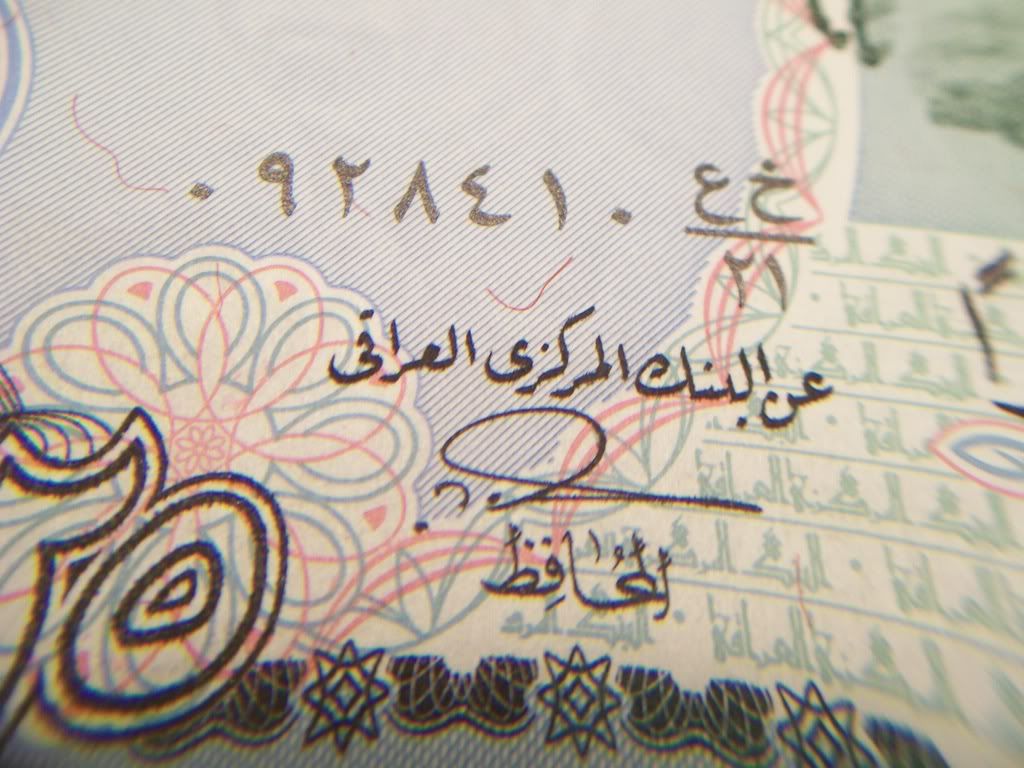 ٠٩٢٨٤١٠ خ ع
٢١
عن البنك المركزي العراقي
المُحَافِظ
٢٥